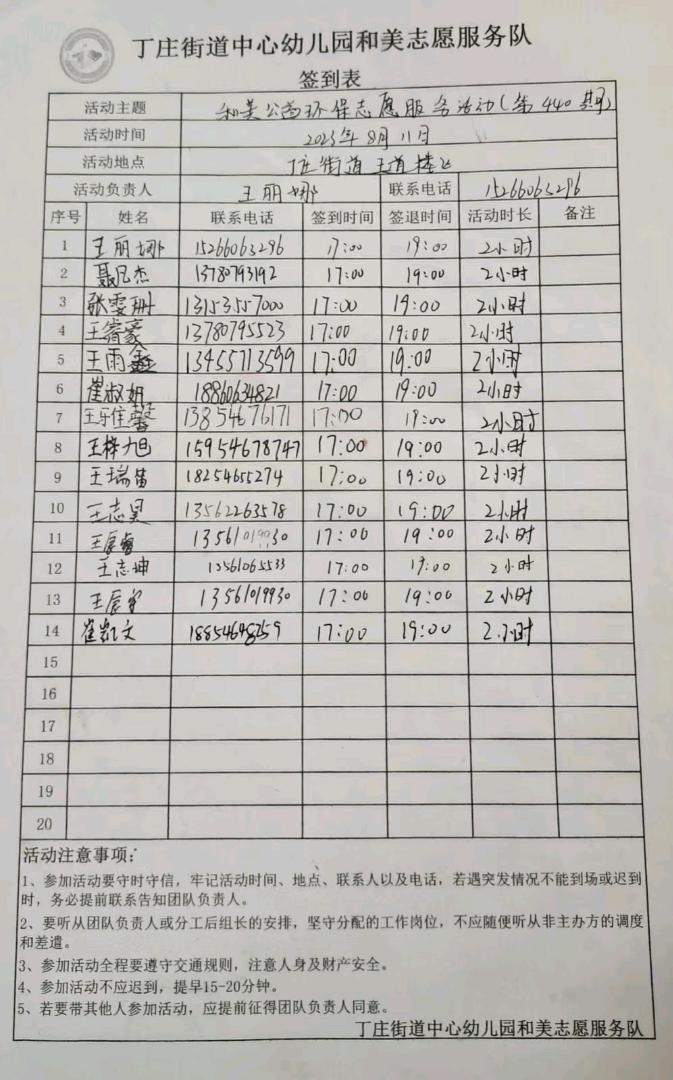 丁庄街道中心幼儿园和美志愿服务队
签到表
活动主题 和美公益环保志愿服务活动(第440期)
活动时间 2023年8月11日
活动地点 丁庄街道王道
活动负责人 王丽娜 联系电话 15266063296
序号 姓名 联系电话 签到时间 签退时间 活动时长 备注
1 王丽娜 15266063296 17:00 19:00 2小时
2 聂凡杰 13780793192 17:00 19:00 2小时
3 张雯珊 13153557000 17:00 19:00 2小时
4 王睿豪 13780795523 17:00 19:00 2小时
5 王雨鑫 13455713599 17:00 19:00 2小时
6 崔淑妍 18860634821 17:00 19:00 2小时
7 王佳馨 13854676171 17:00 19:00 2小时
8 王梓旭 15954678747 17:00 19:00 2小时
9 王瑞笛 18254655274 17:00 19:00 2小时
10 王志昊 13562263578 17:00 19:00 2小时
11 王辰睿 13561019930 17:00 19:00 2小时
12 王志坤 13561065533 17:00 19:00 2小时
13 王辰宇 13561019930 17:00 19:00 2小时
14 崔凯文 18854648259 17:00 19:00 2小时
15
16
17
18
19
20
活动注意事项:
1、参加活动要守时守信，牢记活动时间、地点、联系人以及电话，若遇突发情况不能到场或迟到
时，务必提前联系告知团队负责人。
2、要听从团队负责人或分工后组长的安排，坚守分配的工作岗位，不应随便听从非主办方的调度
和差遣。
3、参加活动全程要遵守交通规则，注意人身及财产安全。
4、参加活动不应迟到，提早15-20分钟。
5、若要带其他人参加活动，应提前征得团队负责人同意。
丁庄街道中心幼儿园和美志愿服务队